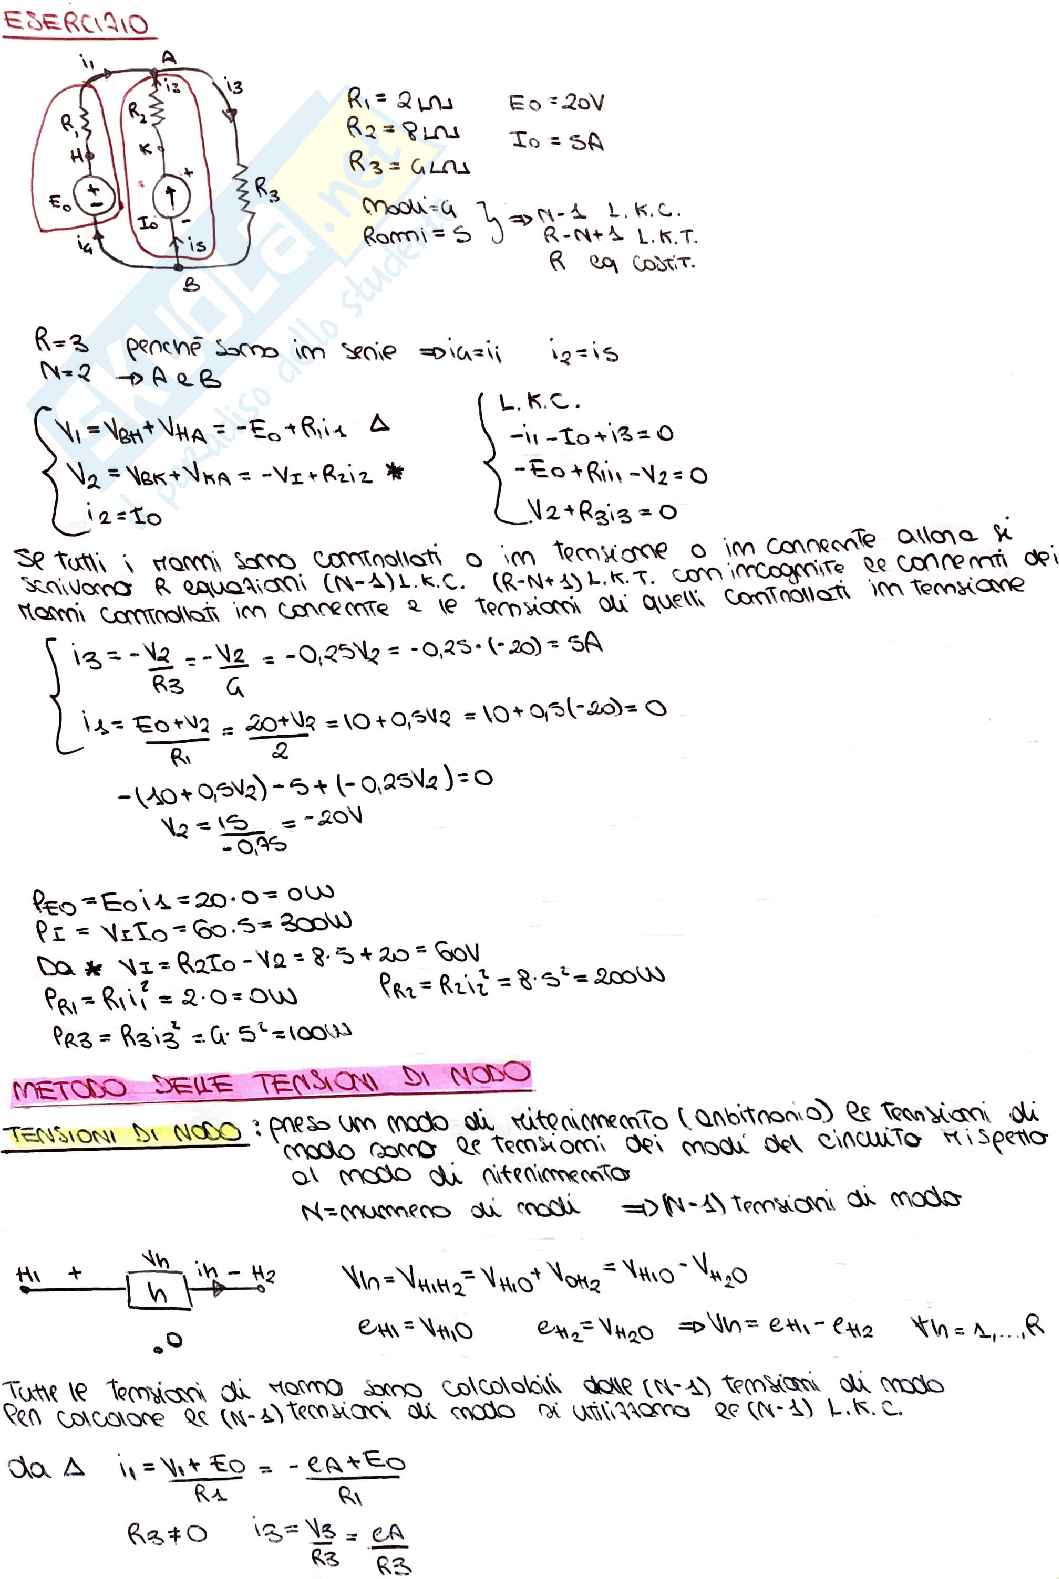 ESERCIZIO
i1 A i2 i3
R1 R2 R3
H K
E0 I0
+ - + -
i4 i5
B
R1 = 2Ω E0 = 20V
R2 = 8Ω I0 = 5A
R3 = 4Ω
Nodi = 4 } ⇒ N-1 L.K.C.
Rami = 5 R-N+1 L.K.T.
R eq costit.
R=3 perché sono in serie ⇒ i4=i1 i2=i5
N=2 → A e B
V1 = VBH + VHA = -E0 + R1i1 Δ
V2 = VBK + VKA = -VI + R2i2 *
i2 = I0
L.K.C.
-i1 - I0 + i3 = 0
-E0 + R1i1 - V2 = 0
V2 + R3i3 = 0
Se tutti i rami sono controllati o in tensione o in corrente allora si
scrivono R equazioni (N-1) L.K.C. (R-N+1) L.K.T. con incognite le correnti dei
rami controllati in corrente e le tensioni di quelli controllati in tensione
i3 = -V2/R3 = -V2/4 = -0,25V2 = -0,25·(-20) = 5A
i1 = E0+V2/R1 = 20+V2/2 = 10+0,5V2 = 10+0,5(-20) = 0
-(10+0,5V2)-5+(-0,25V2)=0
V2 = 15/-0,75 = -20V
PE0 = E0i1 = 20·0 = 0W
PI = VII0 = 60·5 = 300W
Da * VI = R2I0 - V2 = 8·5+20 = 60V
PR1 = R1i1² = 2·0 = 0W PR2 = R2i2² = 8·5² = 200W
PR3 = R3i3² = 4·5² = 100W
METODO DELLE TENSIONI DI NODO
TENSIONI DI NODO: preso un nodo di riferimento (arbitrario) le tensioni di
nodo sono le tensioni dei nodi del circuito rispetto
al nodo di riferimento
N=numero di nodi ⇒ (N-1) tensioni di nodo
H1 + Vh ih - H2
h
.0
Vh = VH1H2 = VH10 + V0H2 = VH10 - VH20
eH1 = VH10 eH2 = VH20 ⇒ Vh = eH1 - eH2 ∀h = 1,...,R
Tutte le tensioni di ramo sono calcolabili dalle (N-1) tensioni di nodo
Per calcolare le (N-1) tensioni di nodo si utilizzano le (N-1) L.K.C.
da Δ i1 = V1+E0/R1 = -eA+E0/R1
R3≠0 i3 = V3/R3 = eA/R3
SKUOLA.net
il paradiso dello studente